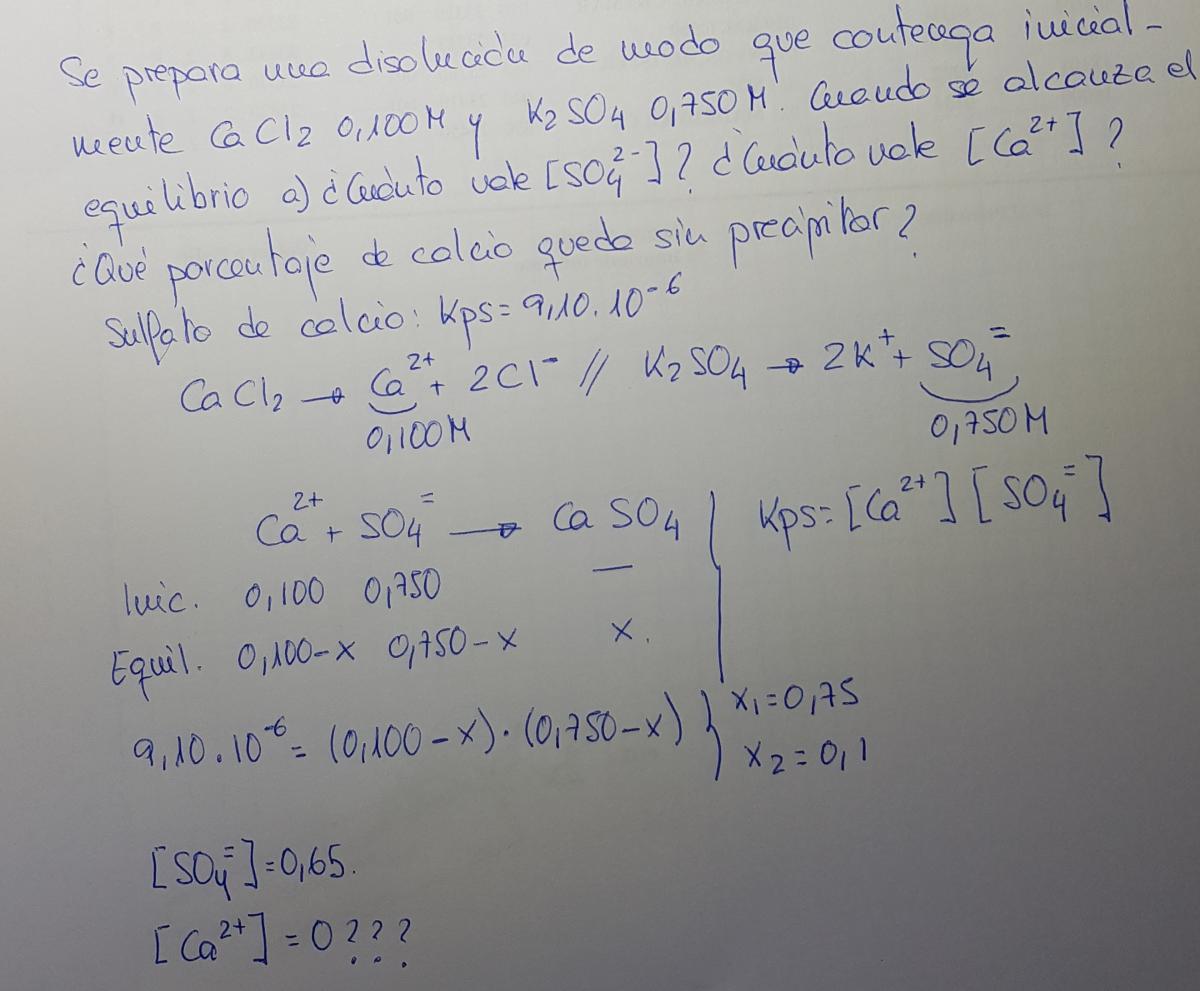 Se prepara una disolución de modo que contenga inicial-
mente CaCl2 0,100M y K2SO4 0,750M. Cuando se alcanza el
equilibrio a) ¿Cuánto vale [SO4^2-]? ¿Cuánto vale [Ca^2+]?
¿Qué porcentaje de calcio queda sin precipitar?
Sulfato de calcio: Kps=9,10.10^-6
CaCl2 → Ca^2+ + 2Cl^- // K2SO4 → 2K^+ + SO4^=
0,100M 0,750M
Ca^2+ + SO4^= → CaSO4 Kps=[Ca^2+][SO4^=]
Inic. 0,100 0,750 —
Equil. 0,100-x 0,750-x x.
9,10.10^-6=(0,100-x)·(0,750-x) } x1=0,75
x2=0,1
[SO4^=]=0,65.
[Ca^2+]=0???